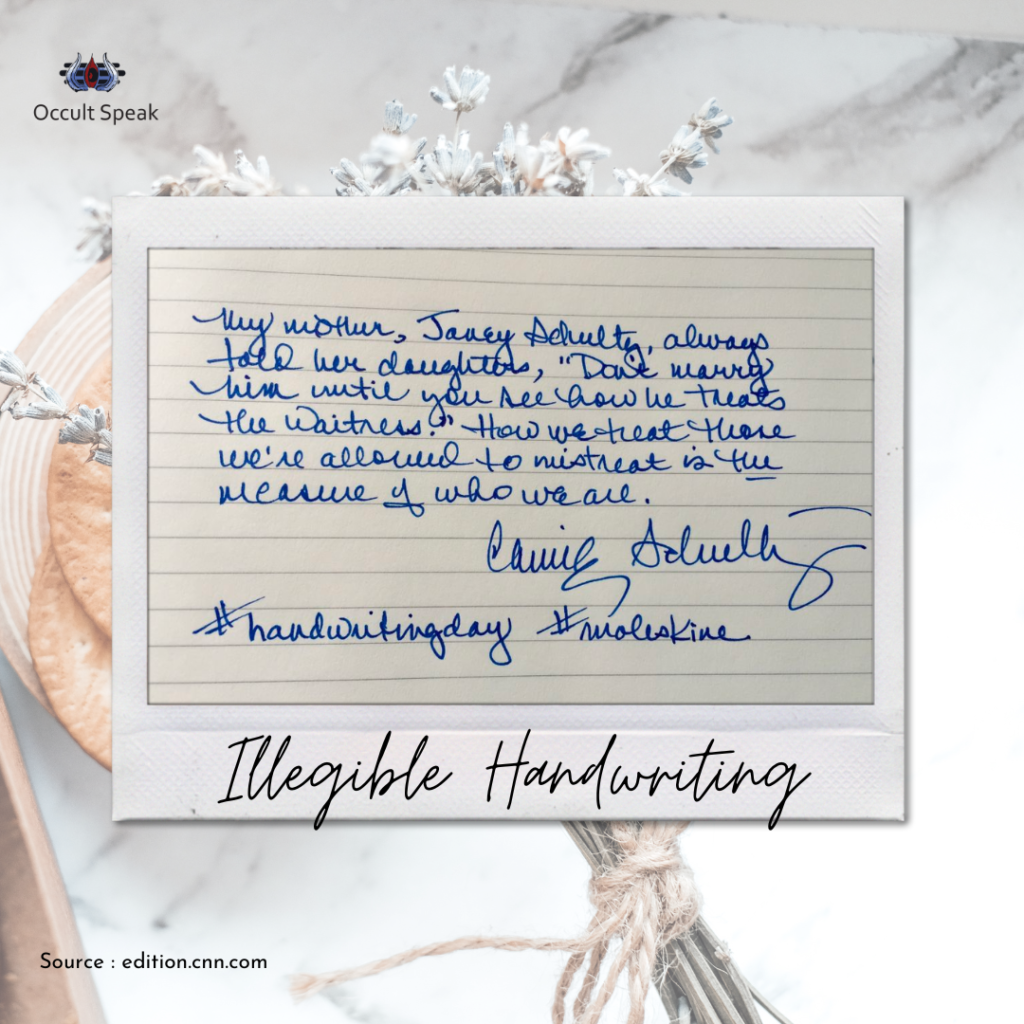 Occult Speak
My mother, Janey Schultz, always
told her daughters, "Don't marry
him until you see how he treats
the waitress." How we treat those
we're allowed to mistreat is the
measure of who we are.
Schultz
#handwritingday #moleskine
Illegible Handwriting
Source : edition.cnn.com